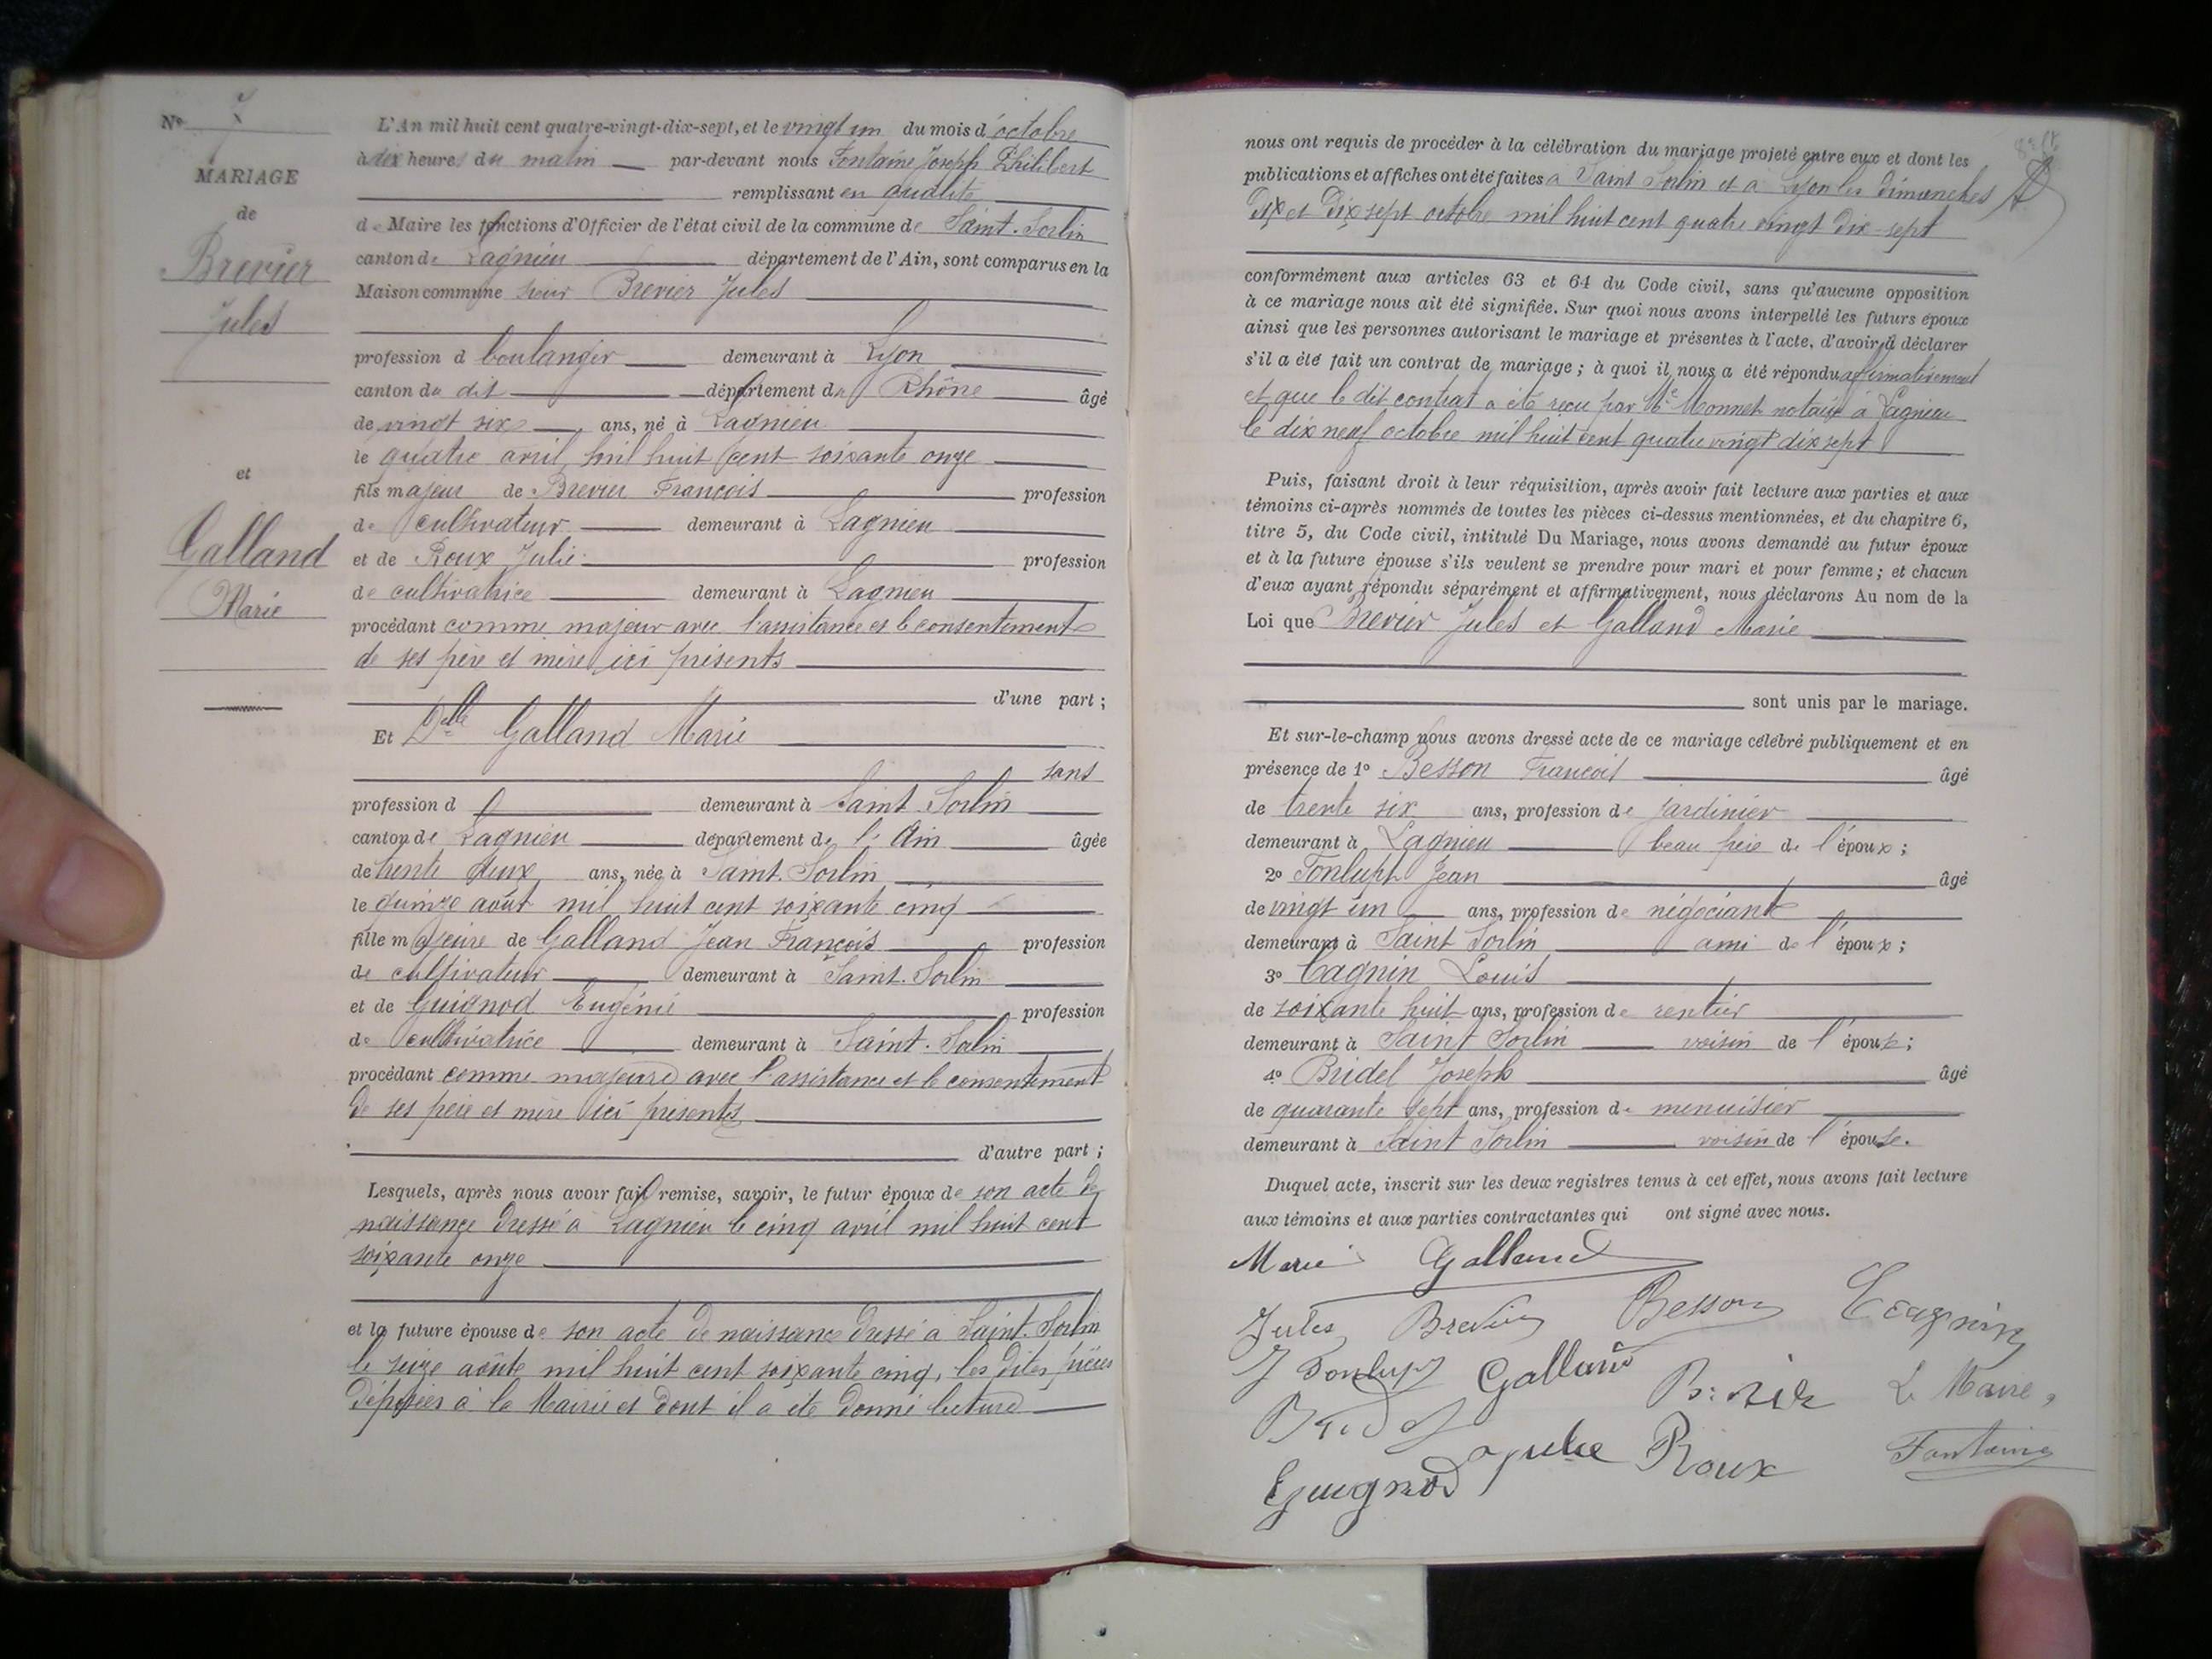 No 7
MARIAGE
de
Brevier
Jules
et
Galland
Marie
L'An mil huit cent quatre-vingt-dix-sept, et le vingt un du mois d'octobre
à dix heures du matin par-devant nous Fontaine Joseph Philibert
remplissant en qualité
de Maire les fonctions d'Officier de l'état civil de la commune de Saint-Sorlin
canton de Lagnieu département de l'Ain, sont comparus en la
Maison commune sieur Brevier Jules
profession d boulanger demeurant à Lyon
canton du dit département du Rhône âgé
de vingt six ans, né à Lagnieu
le quatre avril mil huit cent soixante onze
fils majeur de Brevier François profession
de cultivateur demeurant à Lagnieu
et de Roux Julie profession
de cultivatrice demeurant à Lagnieu
procédant comme majeur avec l'assistance et le consentement
de ses père et mère ici présents
d'une part ;
Et Delle Galland Marie
sans
profession d demeurant à Saint Sorlin
canton de Lagnieu département de l'Ain âgée
de trente deux ans, née à Saint-Sorlin
le quinze août mil huit cent soixante cinq
fille majeure de Galland Jean François profession
de cultivateur demeurant à Saint-Sorlin
et de Guignod Eugénie profession
de cultivatrice demeurant à Saint-Solin
procédant comme majeure avec l'assistance et le consentement
de ses père et mère ici présents
d'autre part ;
Lesquels, après nous avoir fait remise, savoir, le futur époux de son acte de
naissance dressé à Lagnieu le cinq avril mil huit cent
soixante onze
et la future épouse de son acte de naissance dressé à Saint-Sorlin
le seize août mil huit cent soixante cinq, les dites pièces
déposées à la Mairie et dont il a été donné lecture
nous ont requis de procéder à la célébration du mariage projeté entre eux et dont les
publications et affiches ont été faites à Saint Sorlin et à Lyon les dimanches
dix et dix sept octobre mil huit cent quatre vingt dix-sept
conformément aux articles 63 et 64 du Code civil, sans qu'aucune opposition
à ce mariage nous ait été signifiée. Sur quoi nous avons interpellé les futurs époux
ainsi que les personnes autorisant le mariage et présentes à l'acte, d'avoir à déclarer
s'il a été fait un contrat de mariage ; à quoi il nous a été répondu affirmativement
et que le dit contrat a été reçu par Me Monnet notaire à Lagnieu
le dix neuf octobre mil huit cent quatre vingt dix sept
Puis, faisant droit à leur réquisition, après avoir fait lecture aux parties et aux
témoins ci-après nommés de toutes les pièces ci-dessus mentionnées, et du chapitre 6,
titre 5, du Code civil, intitulé Du Mariage, nous avons demandé au futur époux
et à la future épouse s'ils veulent se prendre pour mari et pour femme ; et chacun
d'eux ayant répondu séparément et affirmativement, nous déclarons Au nom de la
Loi que Brevier Jules et Galland Marie
sont unis par le mariage.
Et sur-le-champ nous avons dressé acte de ce mariage célébré publiquement et en
présence de 1o Besson François âgé
de trente six ans, profession de jardinier
demeurant à Lagnieu beau frère de l'époux ;
2o Fonlupt Jean âgé
de vingt un ans, profession de négociant
demeurant à Saint Sorlin ami de l'époux ;
3o Cagnin Louis
de soixante huit ans, profession de rentier
demeurant à Saint Sorlin voisin de l'épouse ;
4o Bridel Joseph âgé
de quarante sept ans, profession de menuisier
demeurant à Saint Sorlin voisin de l'épouse.
Duquel acte, inscrit sur les deux registres tenus à cet effet, nous avons fait lecture
aux témoins et aux parties contractantes qui ont signé avec nous.
Marie Galland
Jules Brevier Besson Cagnin
J Fonlupt Galland Le Maire,
Bridel
Guignod julie Roux Fontaine